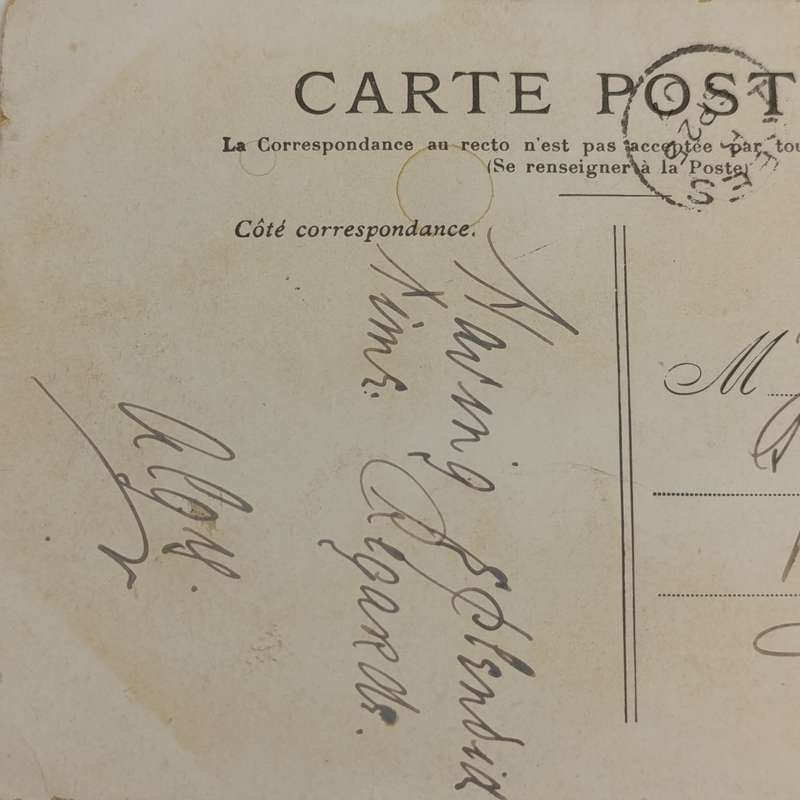 CARTE POST
La Correspondance au recto n'est pas acceptée par tou
(Se renseigner à la Poste)
Côté correspondance.
Having Splendid
Time. Regards.
Algy.
M